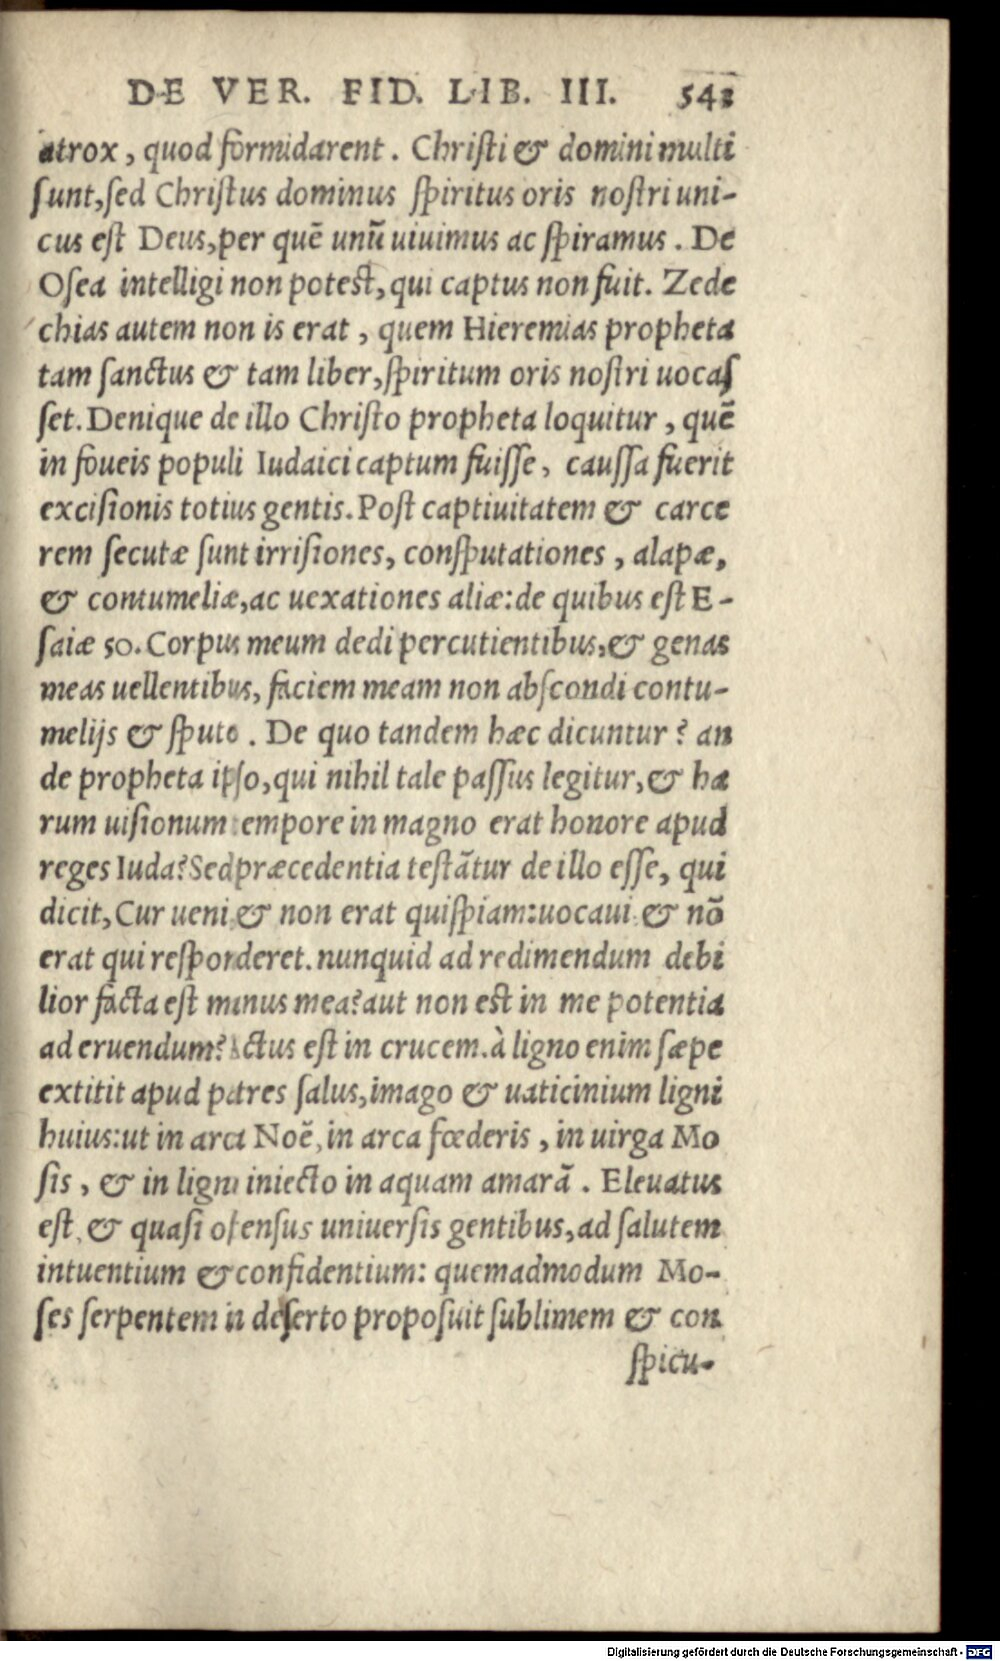 DE VER. FID. LIB. III. 543
atrox, quod formidarent. Chriſti & domini multi
ſunt,ſed Chriſtus dominus ſpiritus oris noſtri uni-
cus eſt Deus,per quē unū uiuimus ac ſpiramus. De
Oſea intelligi non poteſt, qui captus non fuit. Zede
chias autem non is erat, quem Hieremias propheta
tam ſanctus & tam liber,ſpiritum oris noſtri uocaſ
ſet. Denique de illo Chriſto propheta loquitur, quē
in foueis populi Iudaici captum fuiſſe, cauſſa fuerit
exciſionis totius gentis. Poſt captiuitatem & carce
rem ſecutæ ſunt irriſiones, conſputationes, alapæ,
& contumeliæ,ac uexationes aliæ: de quibus eſt E-
ſaiæ 50. Corpus meum dedi percutientibus,& genas
meas uellentibus, faciem meam non abſcondi contu-
melijs & ſputo. De quo tandem hæc dicuntur? an
de propheta ipſo,qui nihil tale paſſus legitur,& ha
rum uiſionum tempore in magno erat honore apud
reges Iuda? Sed præcedentia teſtātur de illo eſſe, qui
dicit, Cur ueni & non erat quiſpiam: uocaui & nō
erat qui reſponderet. nunquid ad redimendum debi
lior facta eſt manus mea? aut non eſt in me potentia
ad eruendum? Actus eſt in crucem. à ligno enim ſæpe
extitit apud patres ſalus,imago & uaticinium ligni
huius: ut in arca Noē, in arca fœderis, in uirga Mo
ſis, & in ligno iniecto in aquam amarā. Eleuatus
eſt, & quaſi oſtenſus uniuerſis gentibus,ad ſalutem
intuentium & confidentium: quemadmodum Mo-
ſes ſerpentem in deſerto propoſuit ſublimem & con
ſpicu-
Digitalisierung gefördert durch die Deutsche Forschungsgemeinschaft - DFG